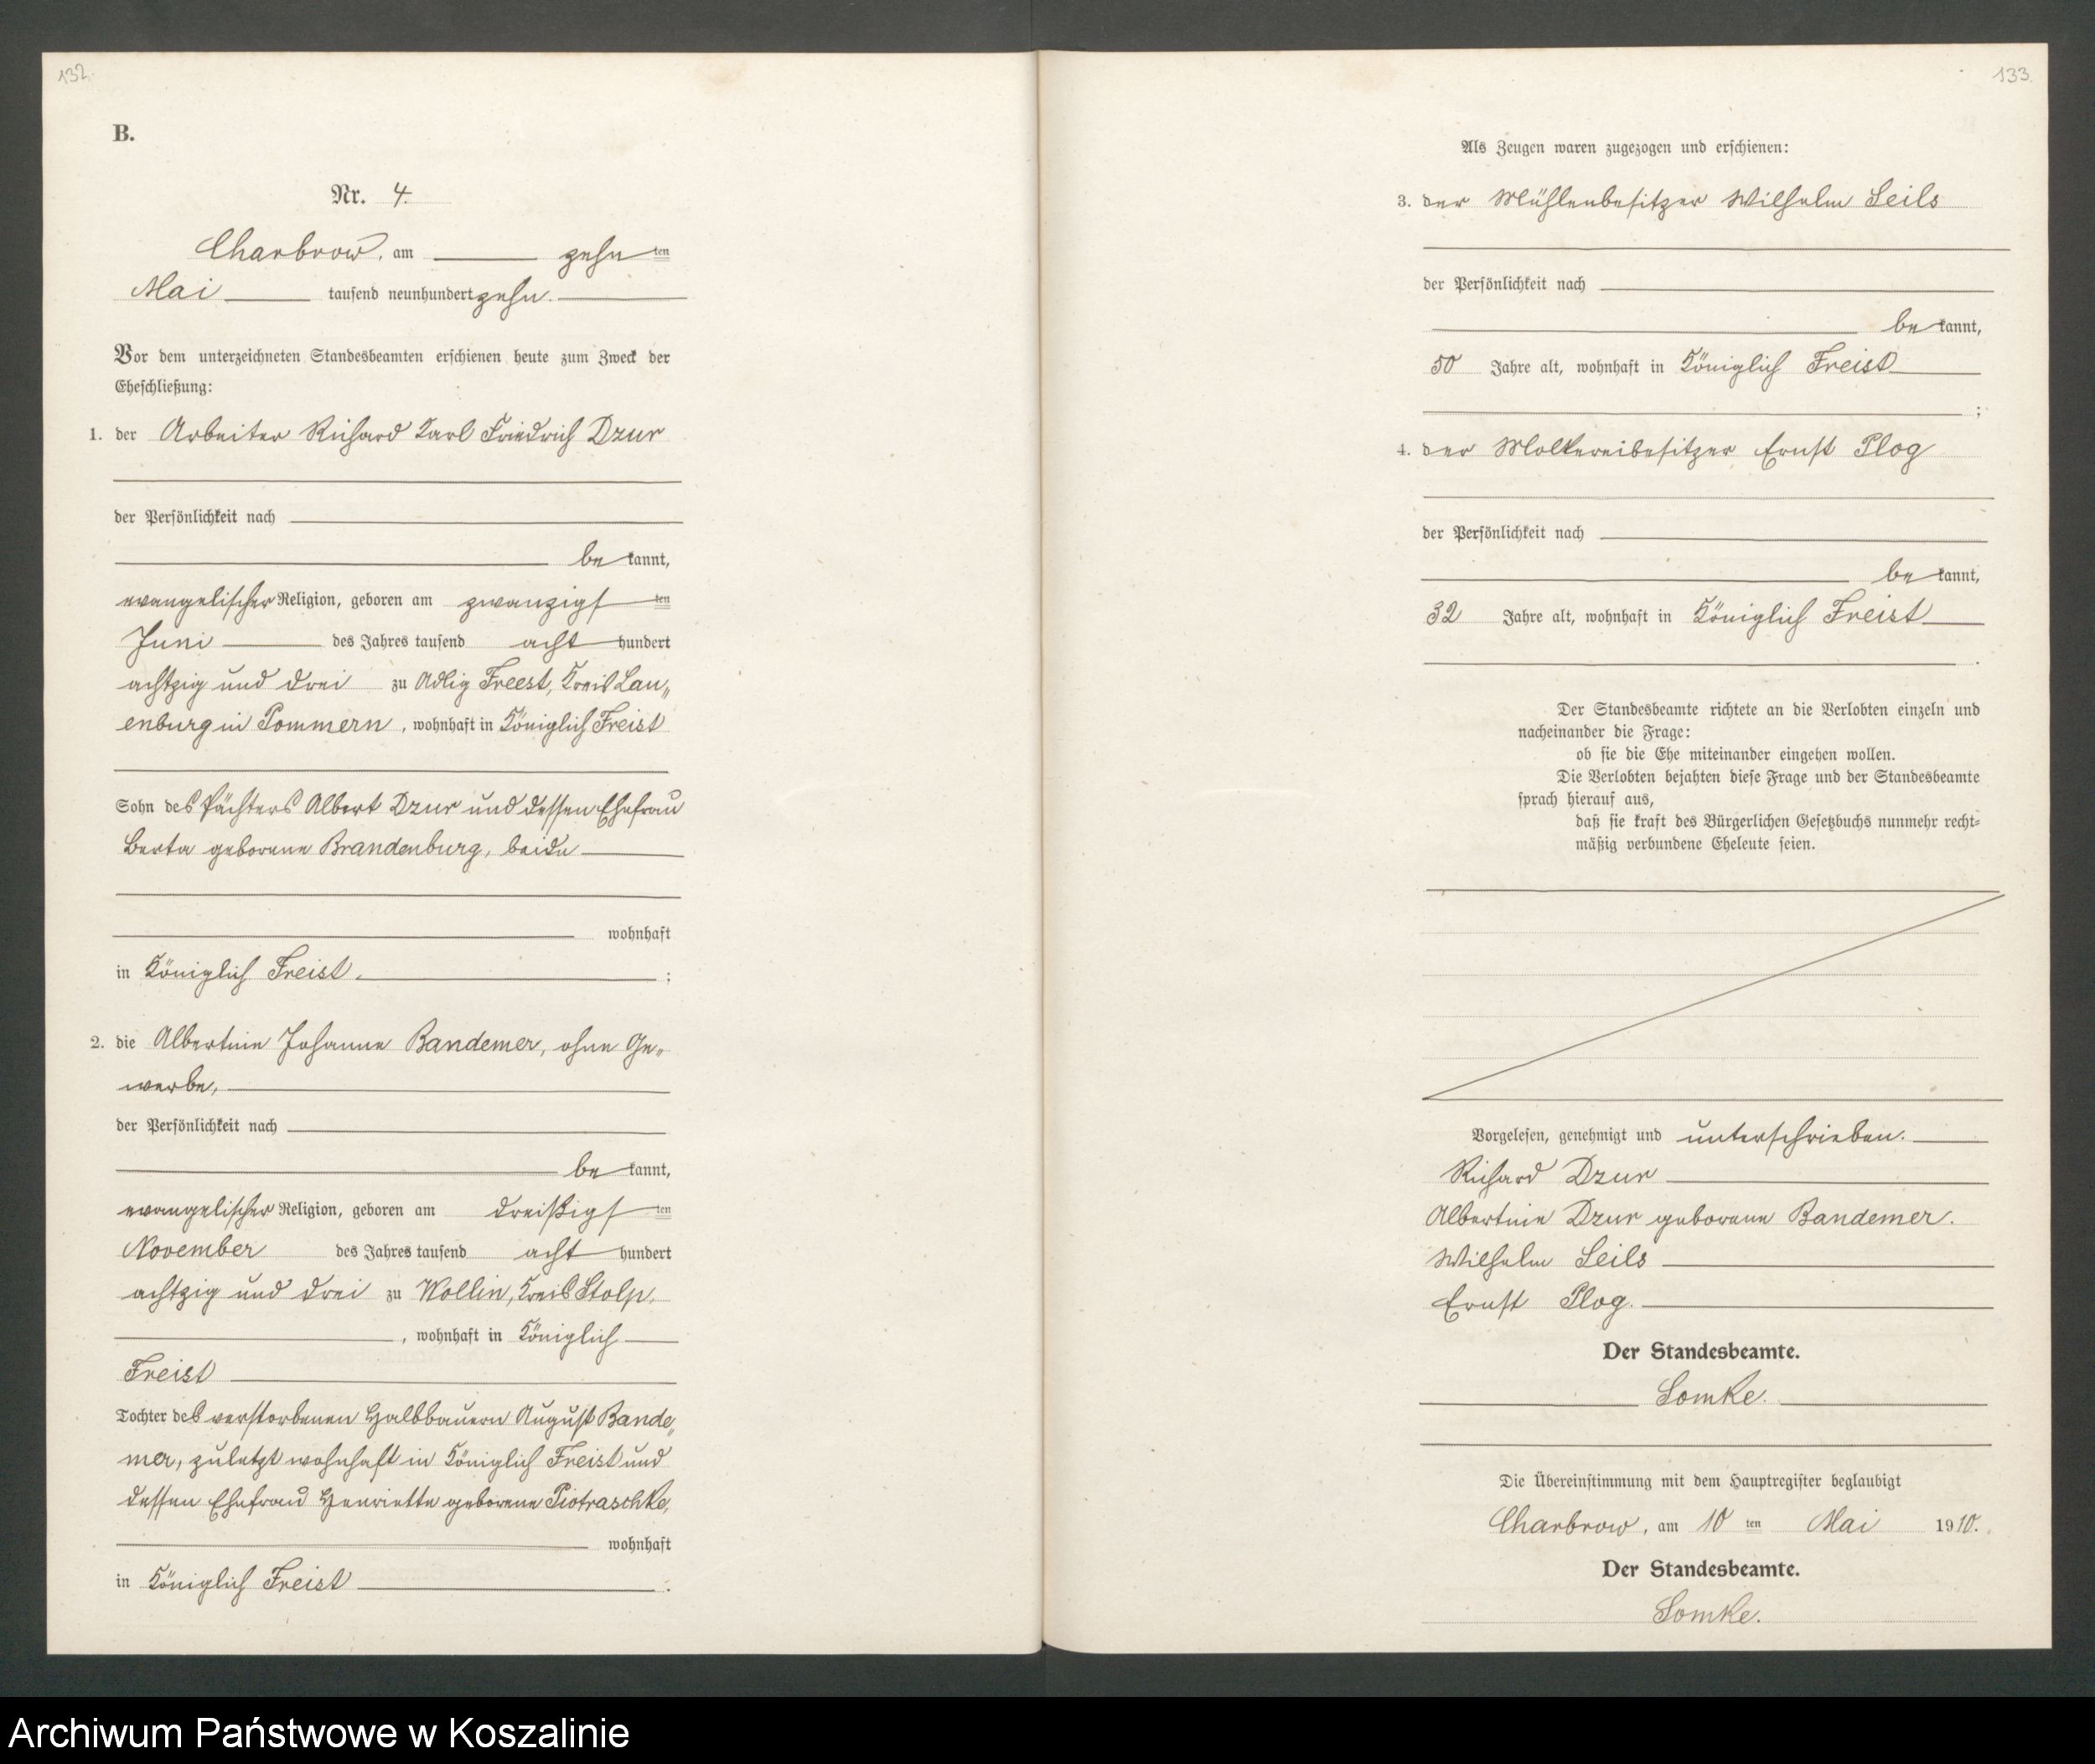 132.
B.
Nr. 4.
Charbrow, am zehn ten
Mai tausend neunhundert zehn.
Vor dem unterzeichneten Standesbeamten erschienen heute zum Zweck der
Eheschließung:
1. der Arbeiter Richard Karl Friedrich Dzur
der Persönlichkeit nach
be kannt,
evangelischer Religion, geboren am zwanzigs ten
Juni des Jahres tausend acht hundert
achtzig und drei zu Adlig Freest, Kreis Lau„
enburg in Pommern, wohnhaft in Königlich Freist
Sohn des Pächters Albert Dzur und dessen Ehefrau
Berta geborene Brandenburg, beide
wohnhaft
in Königlich Freist. ;
2. die Albertine Johanne Bandemer, ohne Ge„
werbe,
der Persönlichkeit nach
be kannt,
evangelischer Religion, geboren am dreißigs ten
November des Jahres tausend acht hundert
achtzig und drei zu Wollin, Kreis Stolp,
, wohnhaft in Königlich
Freist
Tochter des verstorbenen Halbbauern August Bande„
mer, zuletzt wohnhaft in Königlich Freist und
dessen Ehefrau Henriette geborene Piotraschke,
wohnhaft
in Königlich Freist .
133.
Als Zeugen waren zugezogen und erschienen:
3. der Mühlenbesitzer Wilhelm Seils
der Persönlichkeit nach
be kannt,
50 Jahre alt, wohnhaft in Königlich Freist
;
4. der Molkereibesitzer Ernst Plog
der Persönlichkeit nach
be kannt,
32 Jahre alt, wohnhaft in Königlich Freist
.
Der Standesbeamte richtete an die Verlobten einzeln und
nacheinander die Frage:
ob sie die Ehe miteinander eingehen wollen.
Die Verlobten bejahten diese Frage und der Standesbeamte
sprach hierauf aus,
daß sie kraft des Bürgerlichen Gesetzbuchs nunmehr recht=
mäßig verbundene Eheleute seien.
Vorgelesen, genehmigt und unterschrieben.
Richard Dzur
Albertine Dzur geborene Bandemer.
Wilhelm Seils
Ernst Plog.
Der Standesbeamte.
Somke.
Die Übereinstimmung mit dem Hauptregister beglaubigt
Charbrow, am 10 ten Mai 1910.
Der Standesbeamte.
Somke.
Archiwum Państwowe w Koszalinie